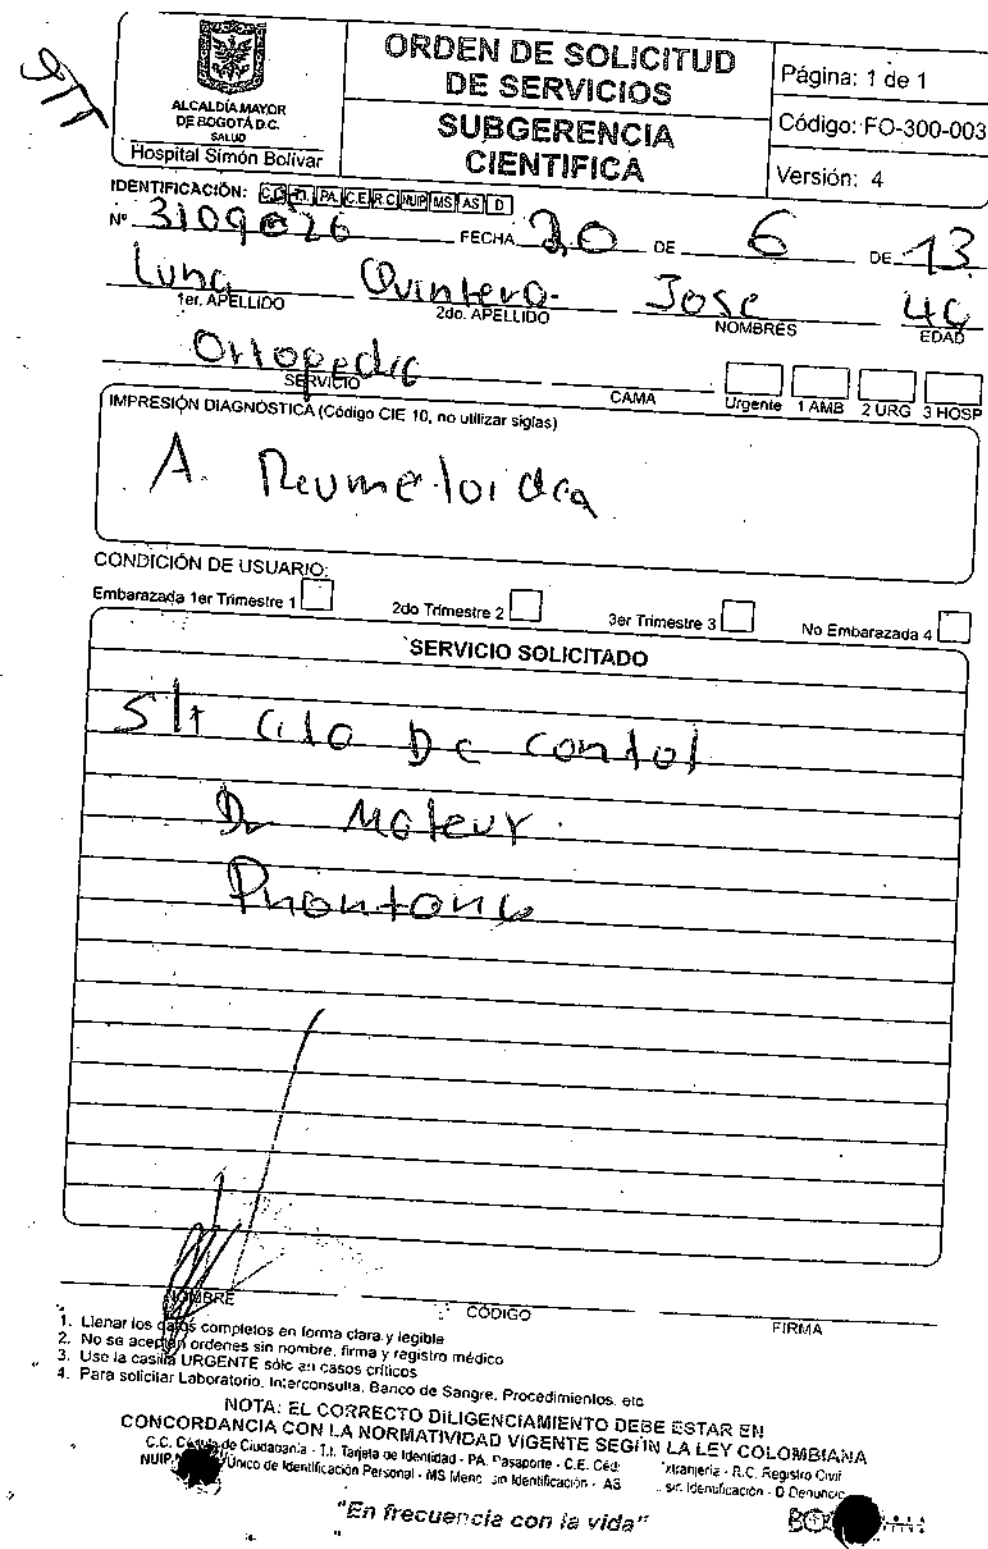 ALCALDÍA MAYOR
DE BOGOTÁ D.C.
SALUD
Hospital Simón Bolívar
ORDEN DE SOLICITUD
DE SERVICIOS
SUBGERENCIA
CIENTIFICA
Página: 1 de 1
Código: FO-300-003
Versión: 4
IDENTIFICACIÓN: C.C. T.I. PA. C.E. R.C. NUIP MS AS D
Nº 3109026 FECHA 20 DE 6 DE 13
Luna Quintero Jose 49
1er. APELLIDO 2do. APELLIDO NOMBRES EDAD
Ortopedia
SERVICIO CAMA Urgente 1 AMB 2 URG 3 HOSP
IMPRESIÓN DIAGNÓSTICA (Código CIE 10, no utilizar siglas)
A. Reumatoidea
CONDICIÓN DE USUARIO:
Embarazada 1er Trimestre 1 2do Trimestre 2 3er Trimestre 3 No Embarazada 4
SERVICIO SOLICITADO
S/t Cita De Contol
Dr Mateur
NOMBRE CÓDIGO FIRMA
1. Llenar los datos completos en forma clara y legible
2. No se aceptan ordenes sin nombre, firma y registro médico
3. Use la casilla URGENTE sólo en casos críticos
4. Para solicitar Laboratorio, Interconsulta, Banco de Sangre, Procedimientos, etc
NOTA: EL CORRECTO DILIGENCIAMIENTO DEBE ESTAR EN
CONCORDANCIA CON LA NORMATIVIDAD VIGENTE SEGÚN LA LEY COLOMBIANA
C.C. Cédula de Ciudadanía - T.I. Tarjeta de Identidad - PA. Pasaporte - C.E. Céd xtranjeria - R.C. Registro Civil
NUIP Único de Identificación Personal - MS Menc sin Identificación - AS sin Identificación - D Denuncio
"En frecuencia con la vida"